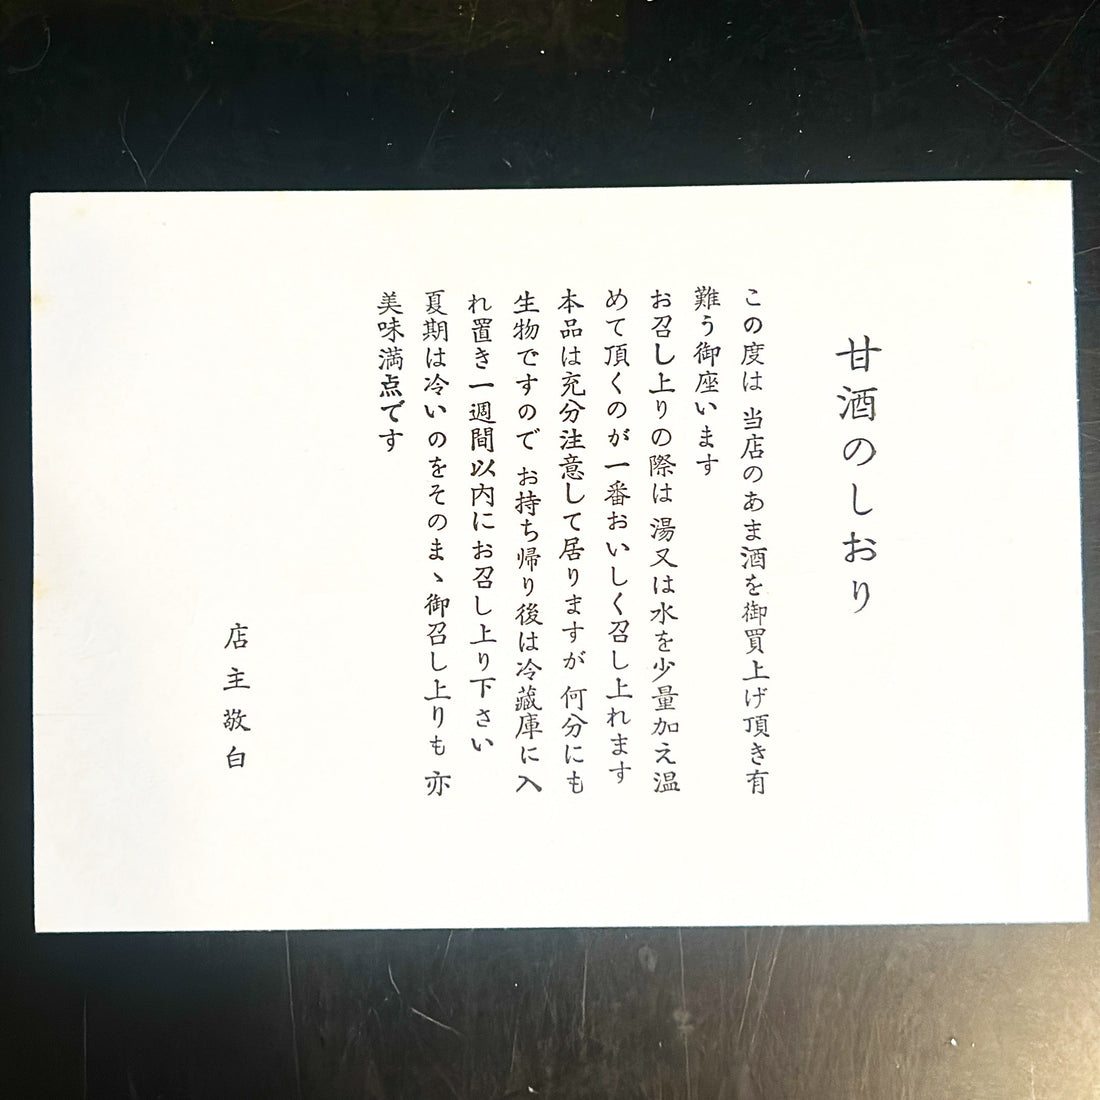 甘酒のしおり
この度は 当店のあま酒を御買上げ頂き有
難う御座います
お召し上りの際は 湯又は水を少量加え温
めて頂くのが一番おいしく召し上れます
本品は充分注意して居りますが 何分にも
生物ですので お持ち帰り後は冷蔵庫に入
れ置き一週間以内にお召し上り下さい
夏期は冷いのをそのまゝ御召し上りも 亦
美味満点です
店主敬白